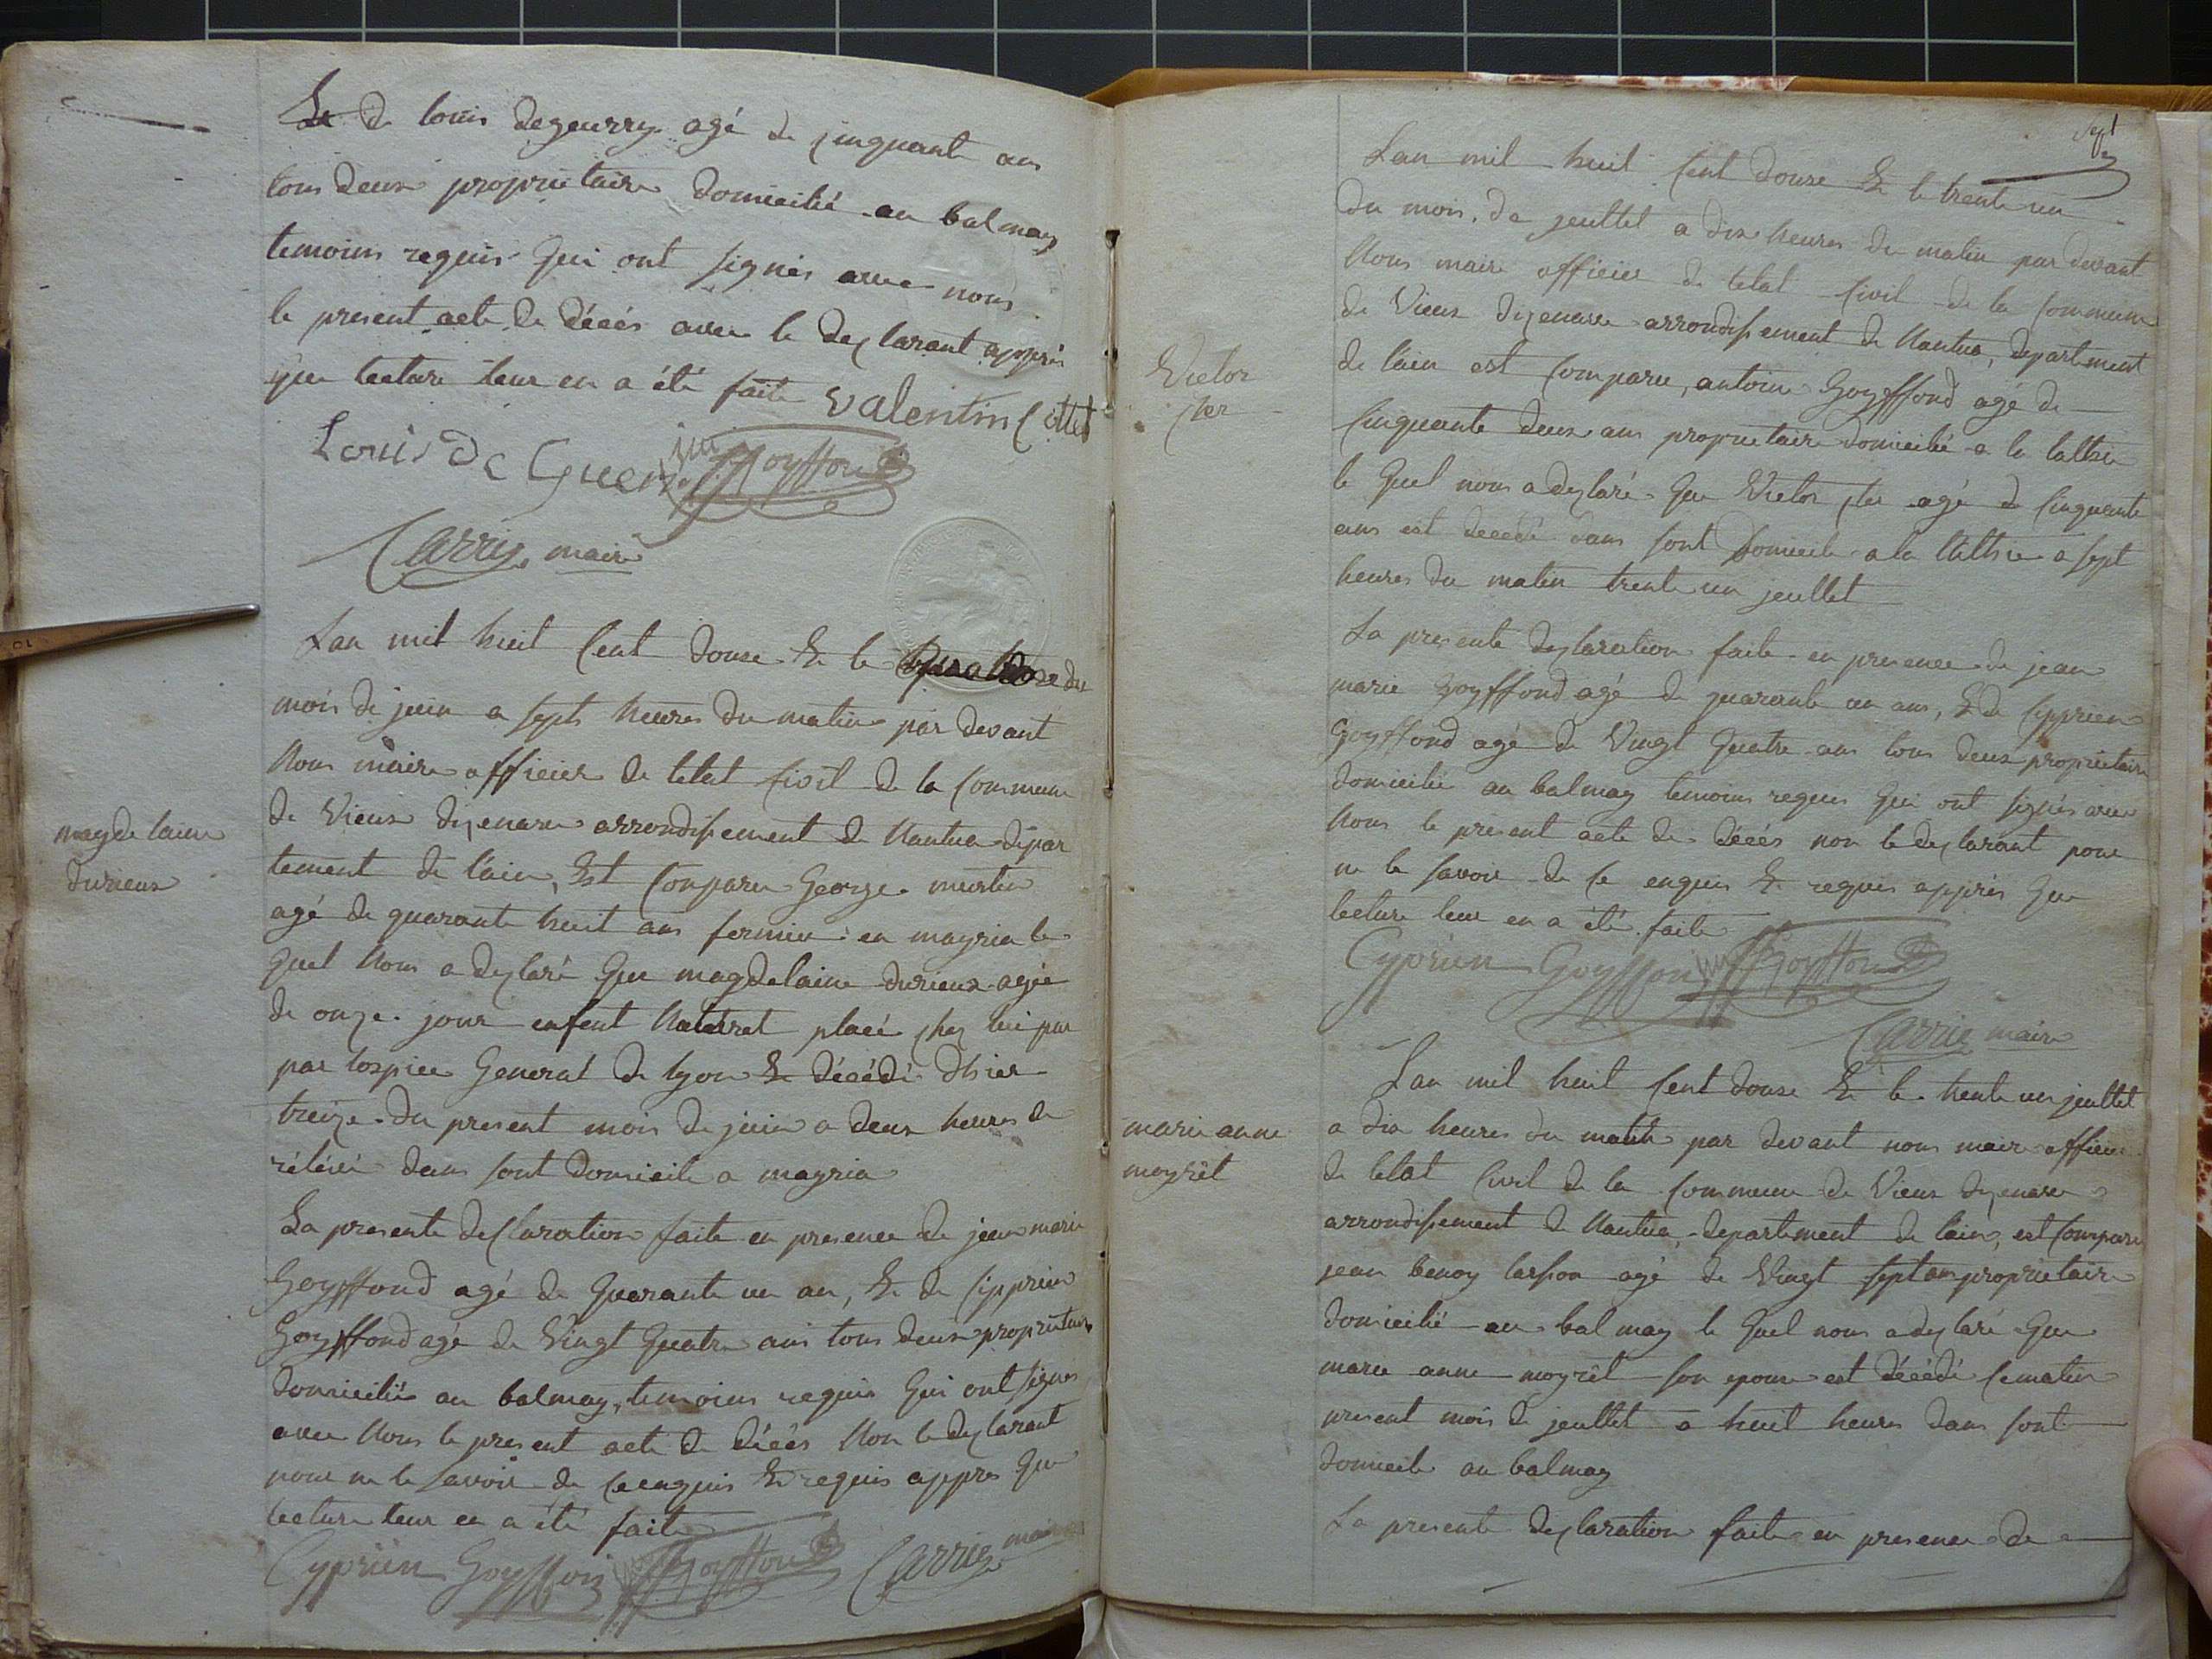 & de louis degeurry agé de cinquante ans
tous deux proprietaire domicilié au balmay
temoins requis qui ont signés avec nous
le present acte de décés avec le declarant apprés
que lecture leur en a été faite valentin Cottet
Louis De Guerry jm Goyffond
Carrier maire
Lan mil huit Cent douze & le quatorze du
mois de juin a septs heures du matin par devant
Nous maire officier de letat Civil de la Commune
magdelaine
durieux
de Vieux dizenave arrondissement de Nantua dépar
tement de l'ain, Est Comparu George murtin
agé de quarante huit ans fermier en mayria le
quel Nous a declaré que magdelaine durieux agée
de onze jour enfent Naturel placé chez lui par
par lospice General de lyon & décédé d'hier
treize du present mois de juin a deux heures de
rélévé dans sont domicile a mayria
La presente declaration faite en presence de jean marie
Goyffond agé de quarante un an, & de Cipprien
Goyffond agé de Vingt quatre ans tous deux proprietaire
domicilié au balmay, temoins requis qui ont signés
avec Nous le present acte de décés Non le declarant
pour ne le savoir de ce enquis & requis appres que
lecture leur en a été faite
Cyprien Goyffon jm Goyffond Carrier maire
sept
Lan mil huit Cent douze & le trente un
du mois de jeuillet a dix heures du matin par devant
Nous maire officier de letat Civil de la Commune
de Vieux dizenave arrondissement de Nantua, departement
Victor
de l'ain est Comparu, antoine Goyffond agé de
Cinquante deux ans proprietaire domicilié a la
le quel nous a declaré que Victor agé de Cinquante
ans est decedé dans sont Domicile a la a sept
heures du matin trente un jeuillet
La presente declaration faite en presence de jean
marie Goyffond agé de quarante un ans, & de Cipprien
Goyffond agé de Vingt quatre ans tous deux proprietaire
domicilié au balmay temoins requis qui ont signés avec
Nous le present acte de décés non le declarant pour
ne le savoir de ce enquis & requis apprés que
lecture leur en a été faite
Cyprien Goyffon jm Goyffond
Carrier maire
Lan mil huit Cent douze & le trente un jeuillet
marie anne
moyrèt
a dix heures du matin par devant nous maire officier
de letat Civil de la Commune de Vieux dizenave
arrondissement de Nantua, departement de lain, est Comparu
jean benoy agé de Vingt sept ans proprietaire
domicilié au balmay le quel nous a declaré que
marie anne moyrèt son epouse est décédé ce matin
present mois de jeuillet a huit heures dans sont
domicile au balmay
La presente declaration faite en presence de